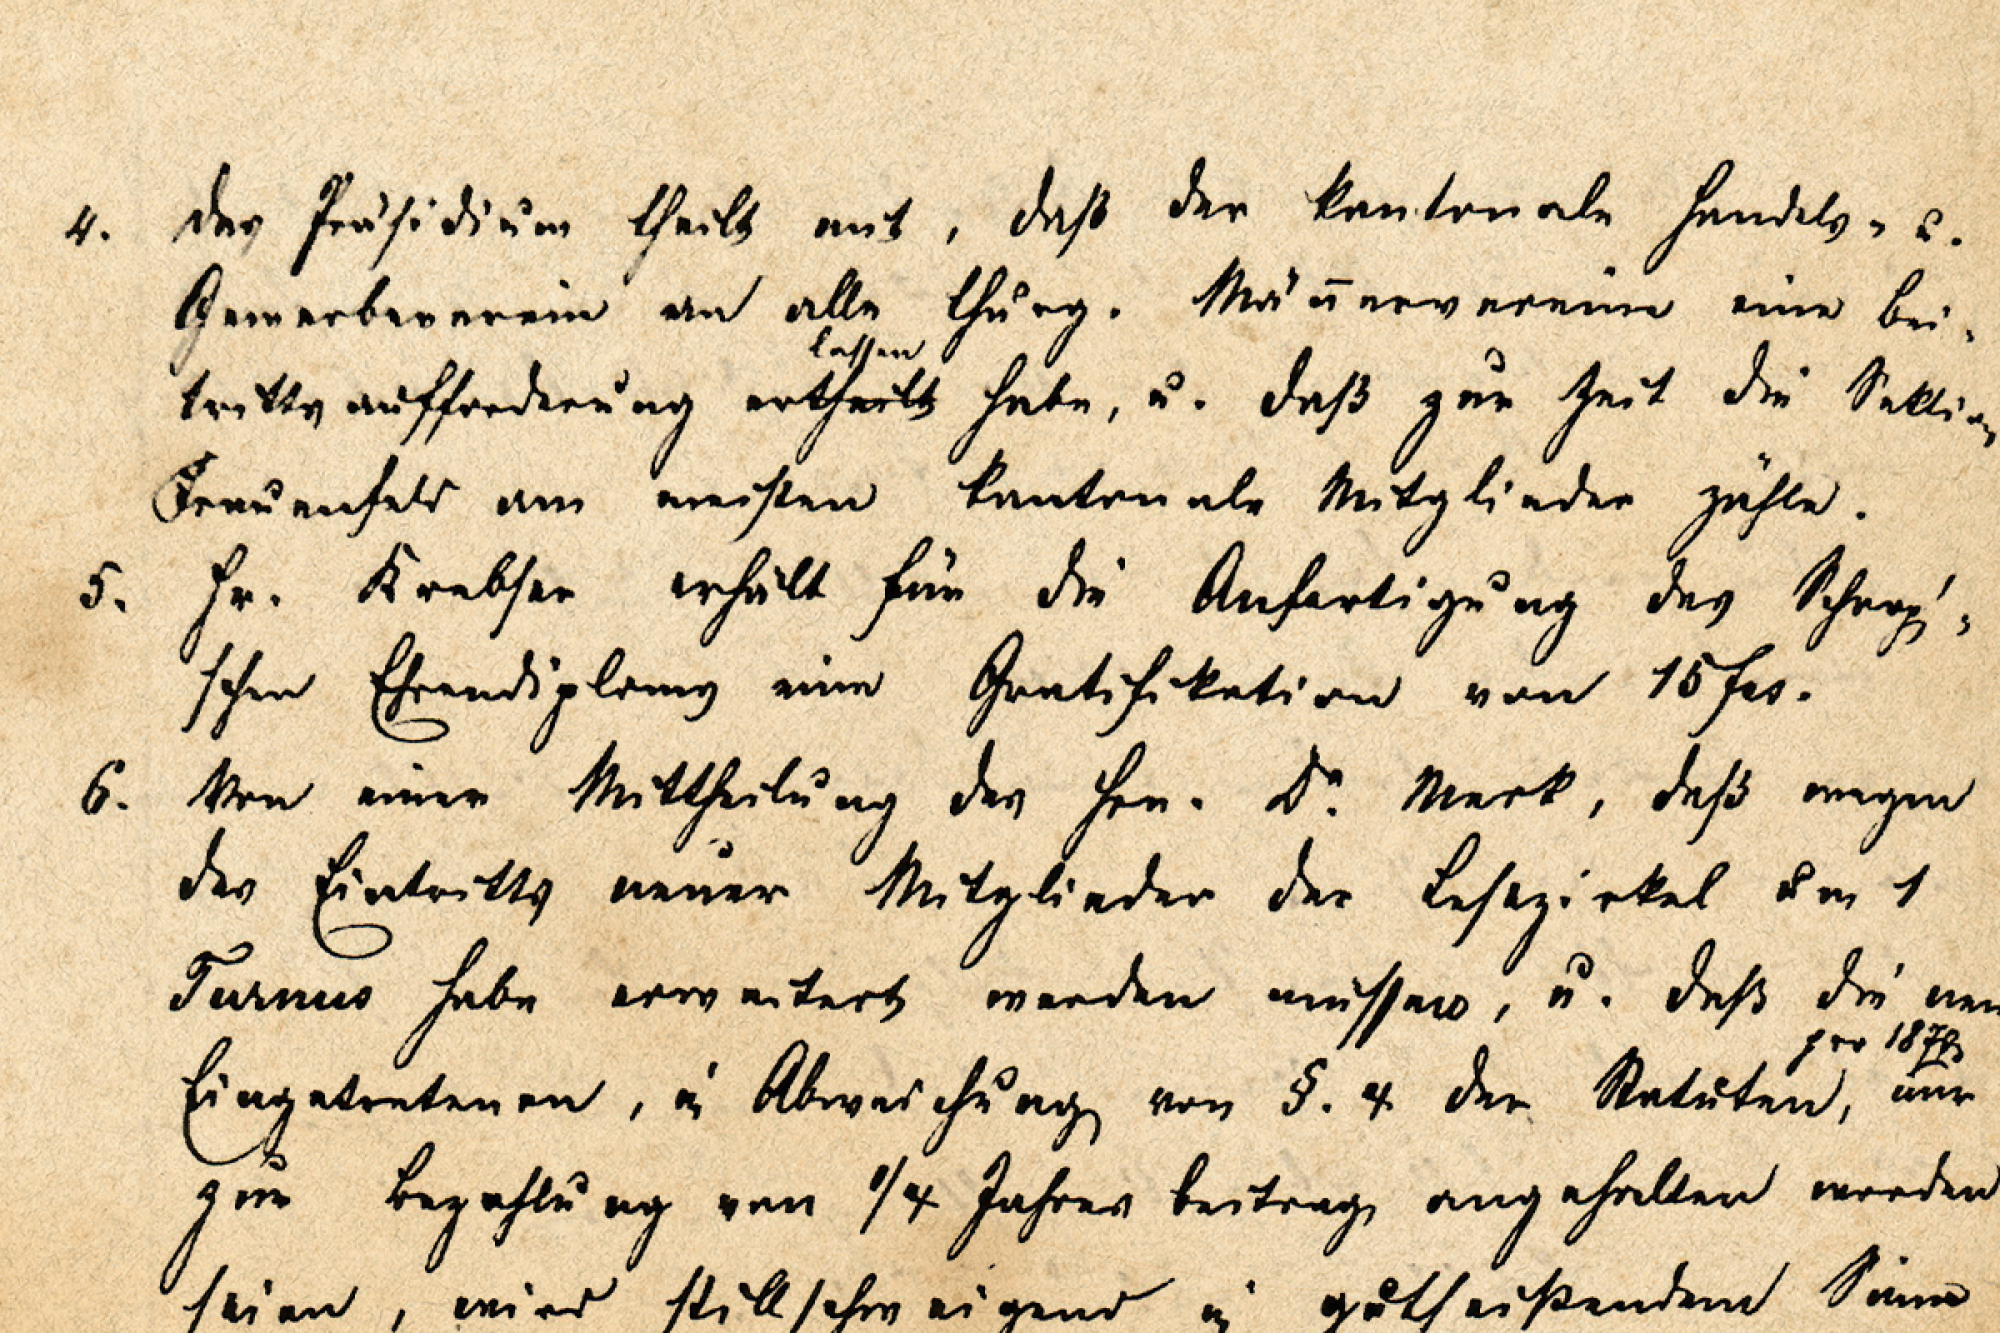 4. Das Präsidium theilt mit, daß der kantonale Handels- u.
Gewerbeverein an alle thurg. Männervereine eine Bei-
lassen
trittsaufforderung ertheilt habe, u. daß zur Zeit die Sektion
Frauenfeld am meisten kantonale Mitglieder zähle.
5. Hr. Krebser erhält für die Anfertigung des
schen Ehrendiploms eine Gratifikation von 15 frs.
6. Von einer Mittheilung des Hrn. Dr. Merk, daß wegen
des Eintritts neuer Mitglieder der Lesezirkel um 1
Turnus habe erweitert werden müssen, u. daß die neu
per
Eingetretenen, in Abweichung von §. 4 der Statuten, nur
zur Bezahlung von 1/4 Jahresbeitrag angehalten worden
seien, wird stillschweigend in gutheißendem Sinne